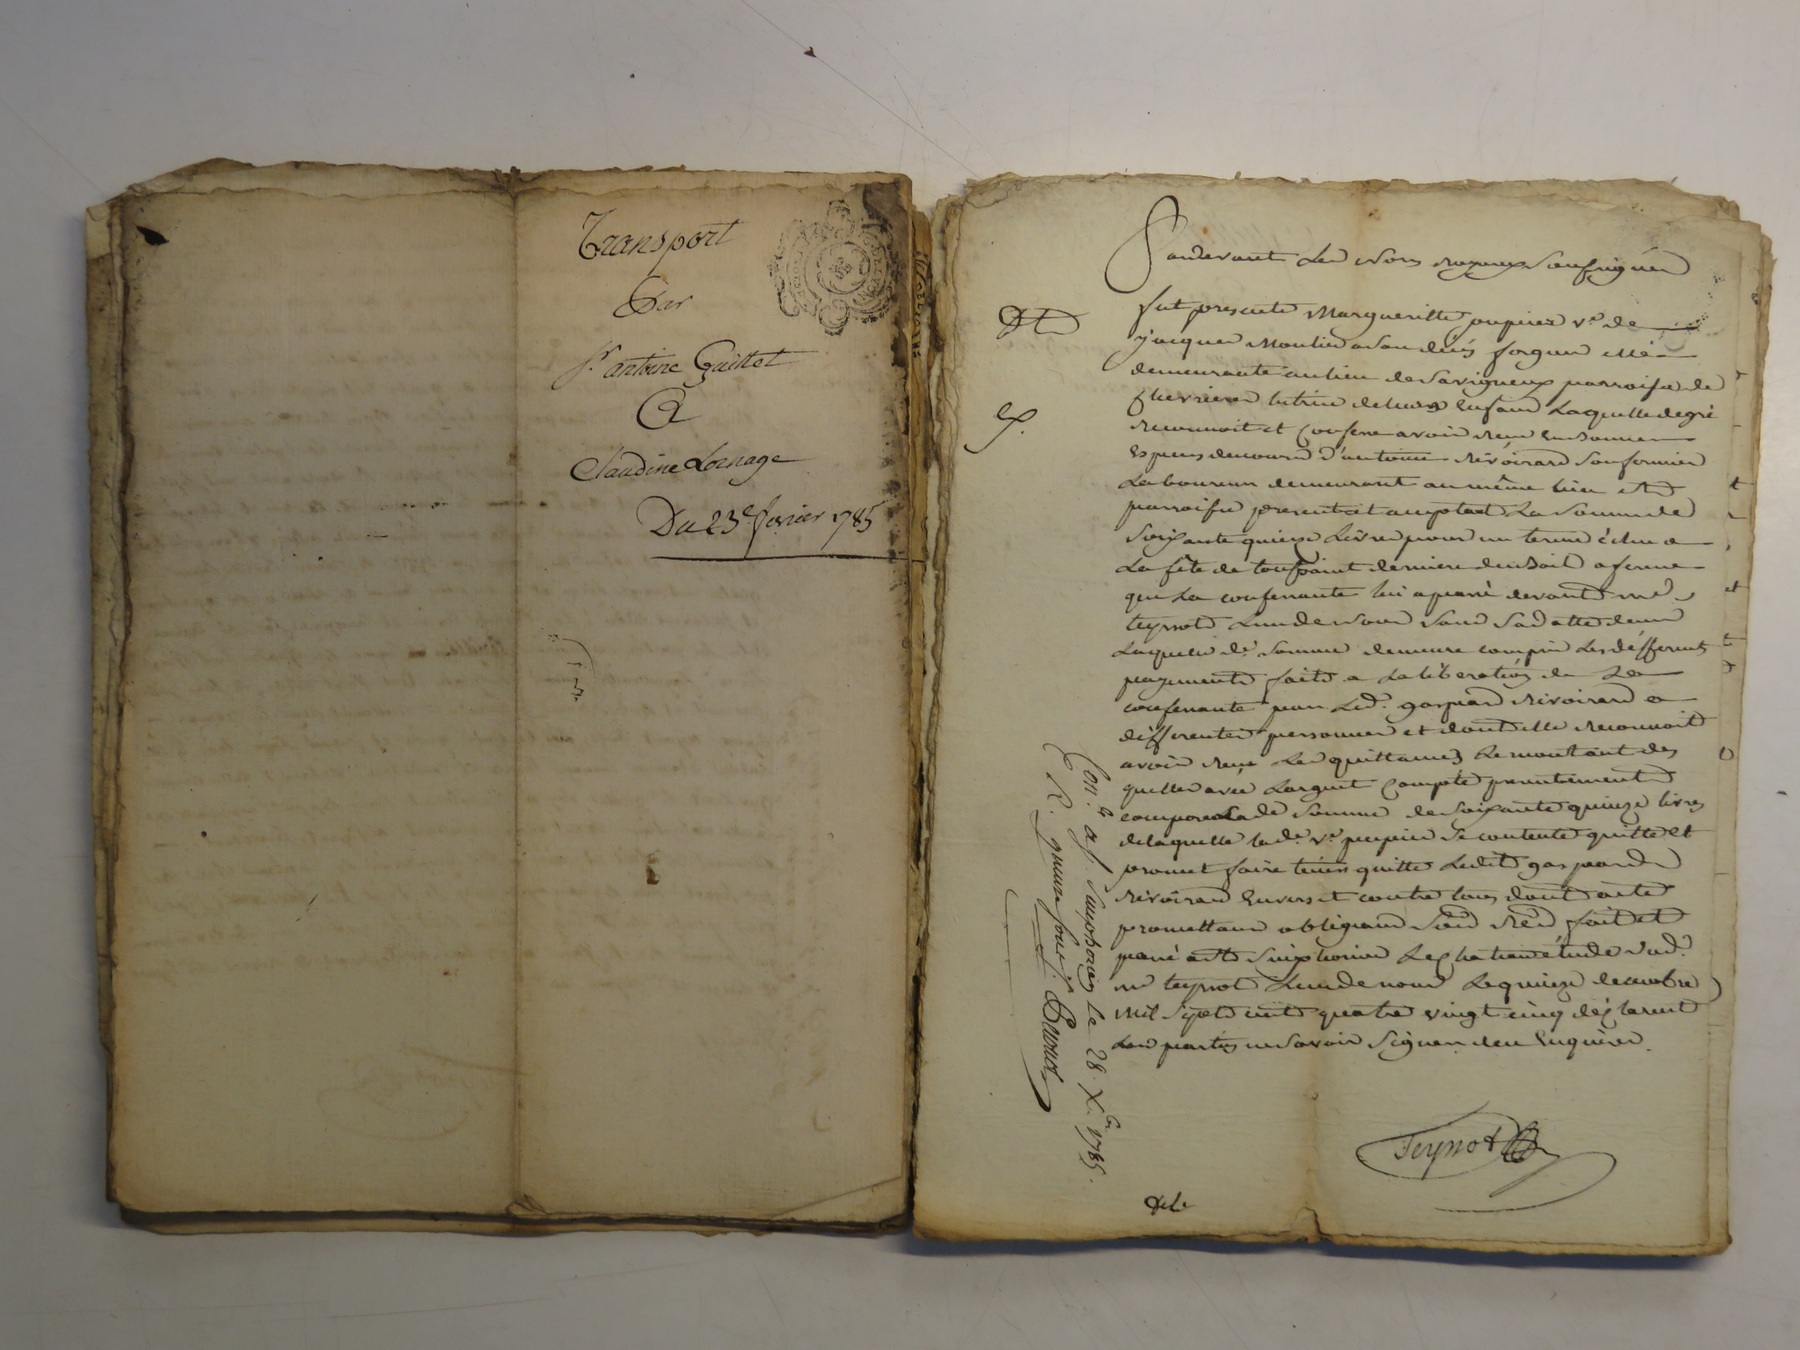 Transport
Par
Sr. antoine Guillet
A
Claudine Lornage
Du 23e fevrier 1785
Pardevant Les Nores royaux soussignés
fut presente Margueritte pupier ve. de
jacques Moulin a son décés forgeur elle
demeurante au lieu de Savigneux parroisse de
chevrieres tutrice de leurs Enfans Laquelle de gré
reconnoit et Confesse avoir reçu En bonnes
Espèces de cours d'antoine révoirard son fermier
Laboureur demeurant au même lieu et
parroisse present et acceptant La Somme de
soixante quinze Livres pour un terme échu a
La fête de toussaint derniere du bail a ferme
que La confessante lui a passé devant me.
teynot L'un de nous sans Sad atte d'eux
Laquelle de. Somme demeure compris Les défferents
payements faits a La libération de La
confessante par Led. gaspard Révoirard a
différentes personnes et dont elle reconnoit
avoir reçu Les quittances Le montant des
quelles avec L'argent Compté presentement
compose La de Somme de Soixante quinze livres
de laquelle lade. ve. pupier se contente quitte et
promet faire tenir quitte Ledit gaspard
révoirard Envers et contre tous dont acte
promettans obligeans Soum Ren. fait et
passé a St Simphorien Le Chateau étude dud.
me teynot L'un de nous Le quinze decembre
Mil Sept cent quatre vingt cinq déclarent
Les parties ne Savoir Signer de ce Enquises
Teynot
Con.lé a St. Simphorien Le 28 Xbre 1785.
R. quinze sous